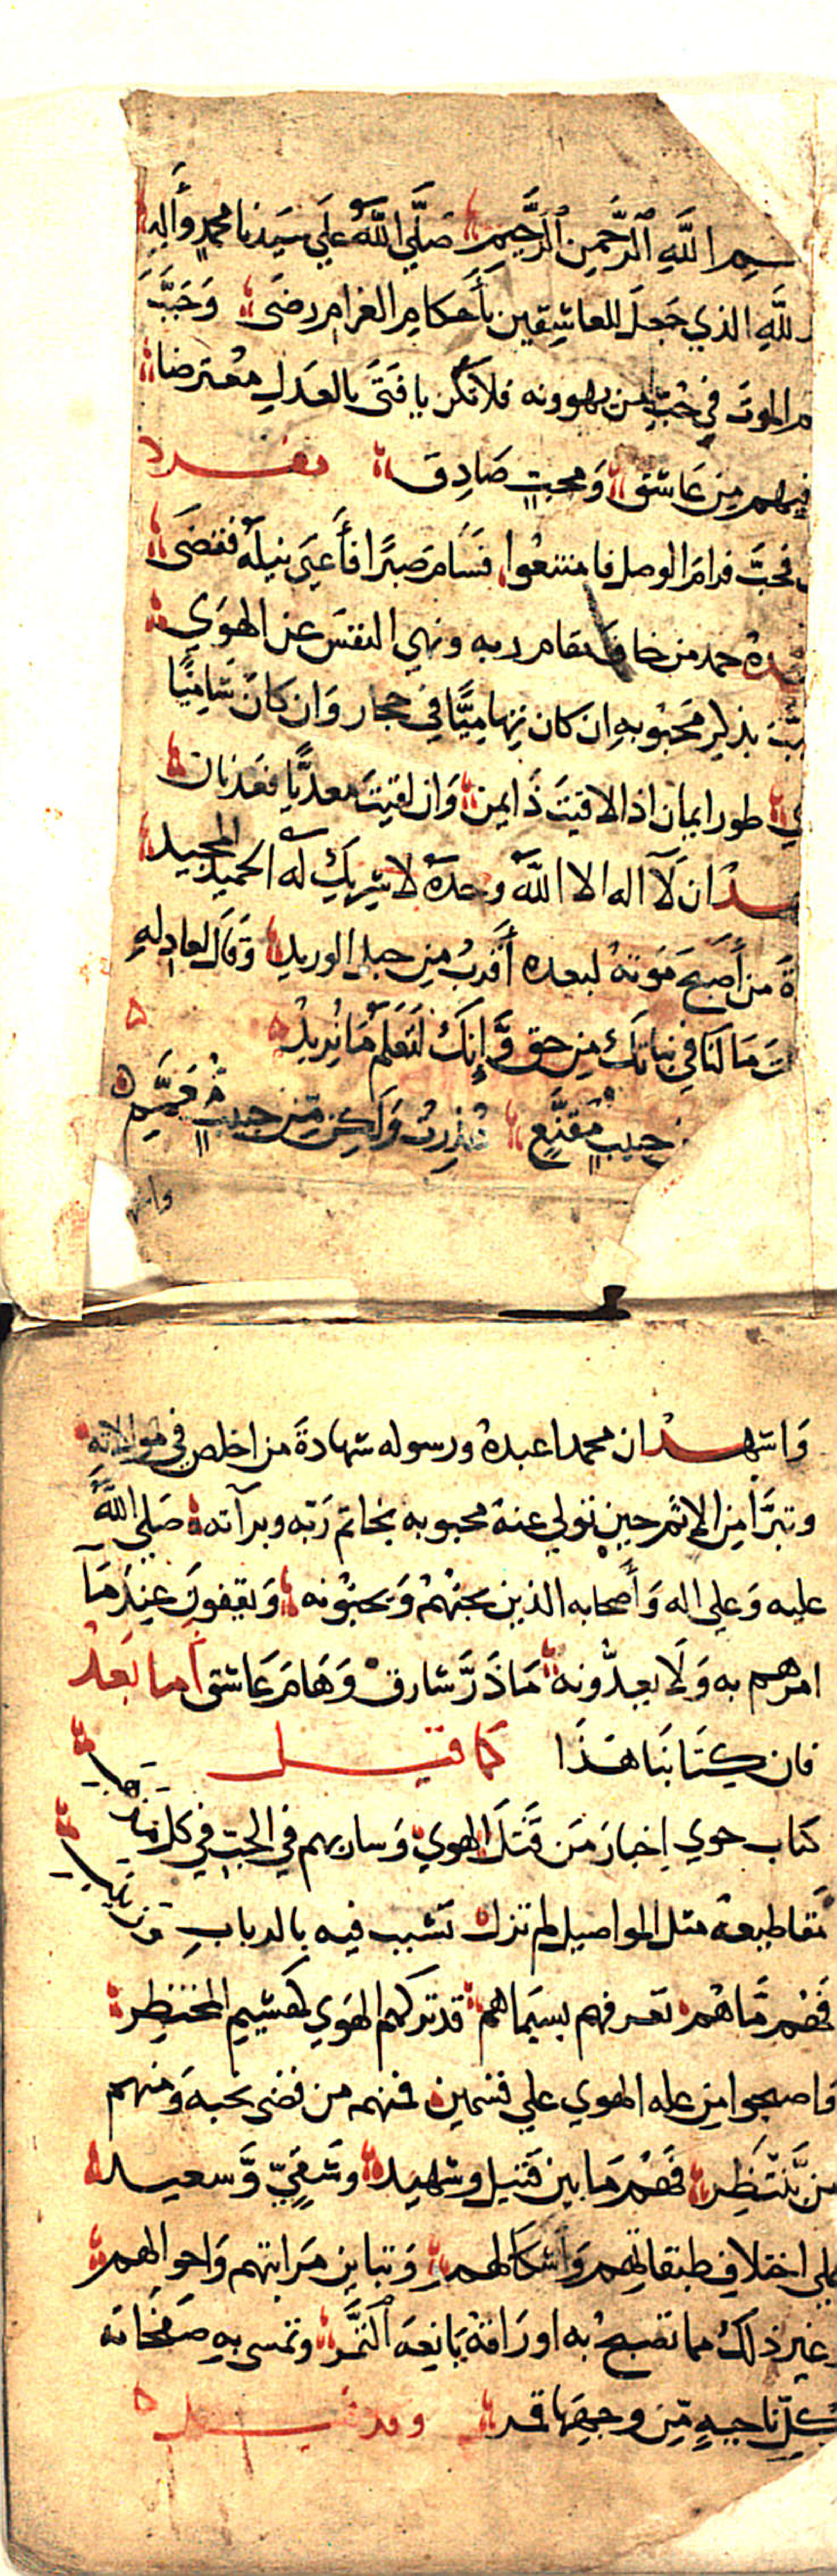 بسم الله الرحمن الرحيم صلي الله علي سيدنا محمد وآله
لله الذي جعل للعاشقين بأحكام الغرام رضى وحبب
م الموت في حب من يهوونه فلا تكن يا فتى بالعدل معترضا
فيهم من عاشق ومحب صادق مفرد
محب فرام الوصل فامتنعوا فسام صبرا فأعيى نيله فقضى
حمد من خاف مقام ربه ونهي النفس عن الهوي
بذكر محبوبه ان كان تهاميا في حجاز وان كان شاميا
طورا يمان اذا لاقيت ذا يمن وان لقيت معديا فعدنان
ان لا اله الا الله وحده لا شريك له الحميد المجيد
ة من أصبح موته لبعده أقرب من حبل الوريد وقال لعاذله
ت ما لنا في بناتك من حق وإنك لتعلم ما نريد
حبيب مقنع عذرت ولكن من حبيب معمم
واشهد
واشهد ان محمدا عبده ورسوله شهادة من اخلص في موالاته
وتبرأ من الاثم حين تولي عنه محبوبه بخاتم ربه وبرآته صلي الله
عليه وعلي اله وأصحابه الذين يحبهم ويحبونه ويقفون عند ما
امرهم به ولا يعدونه ما ذر شارق وهام عاشق أما بعد
فان كتابنا هذا كما قيل
كتاب حوي اخبار من قتل الهوي وسار بهم في الحب في كل مذهب
مقاطيعه مثل المواصيل لم تزل تشبب فيه بالرباب وزينب
فهم ما هم تعرفهم بسيماهم قد تركهم الهوي كهشيم المحتظر
واصبحوا من علة الهوي علي قسمين فمنهم من قضى نحبه ومنهم
من ينتظر فهم ما بين قتيل وشهيد وشقي وسعيد
علي اختلاف طبقاتهم واشكالهم وتباين مراتبهم واحوالهم
وغير ذلك مما تصبح به اوراقه يانعة الثمر وتمسى به صفحاته
بكل ناحية من وجهها قمر وقد قيل